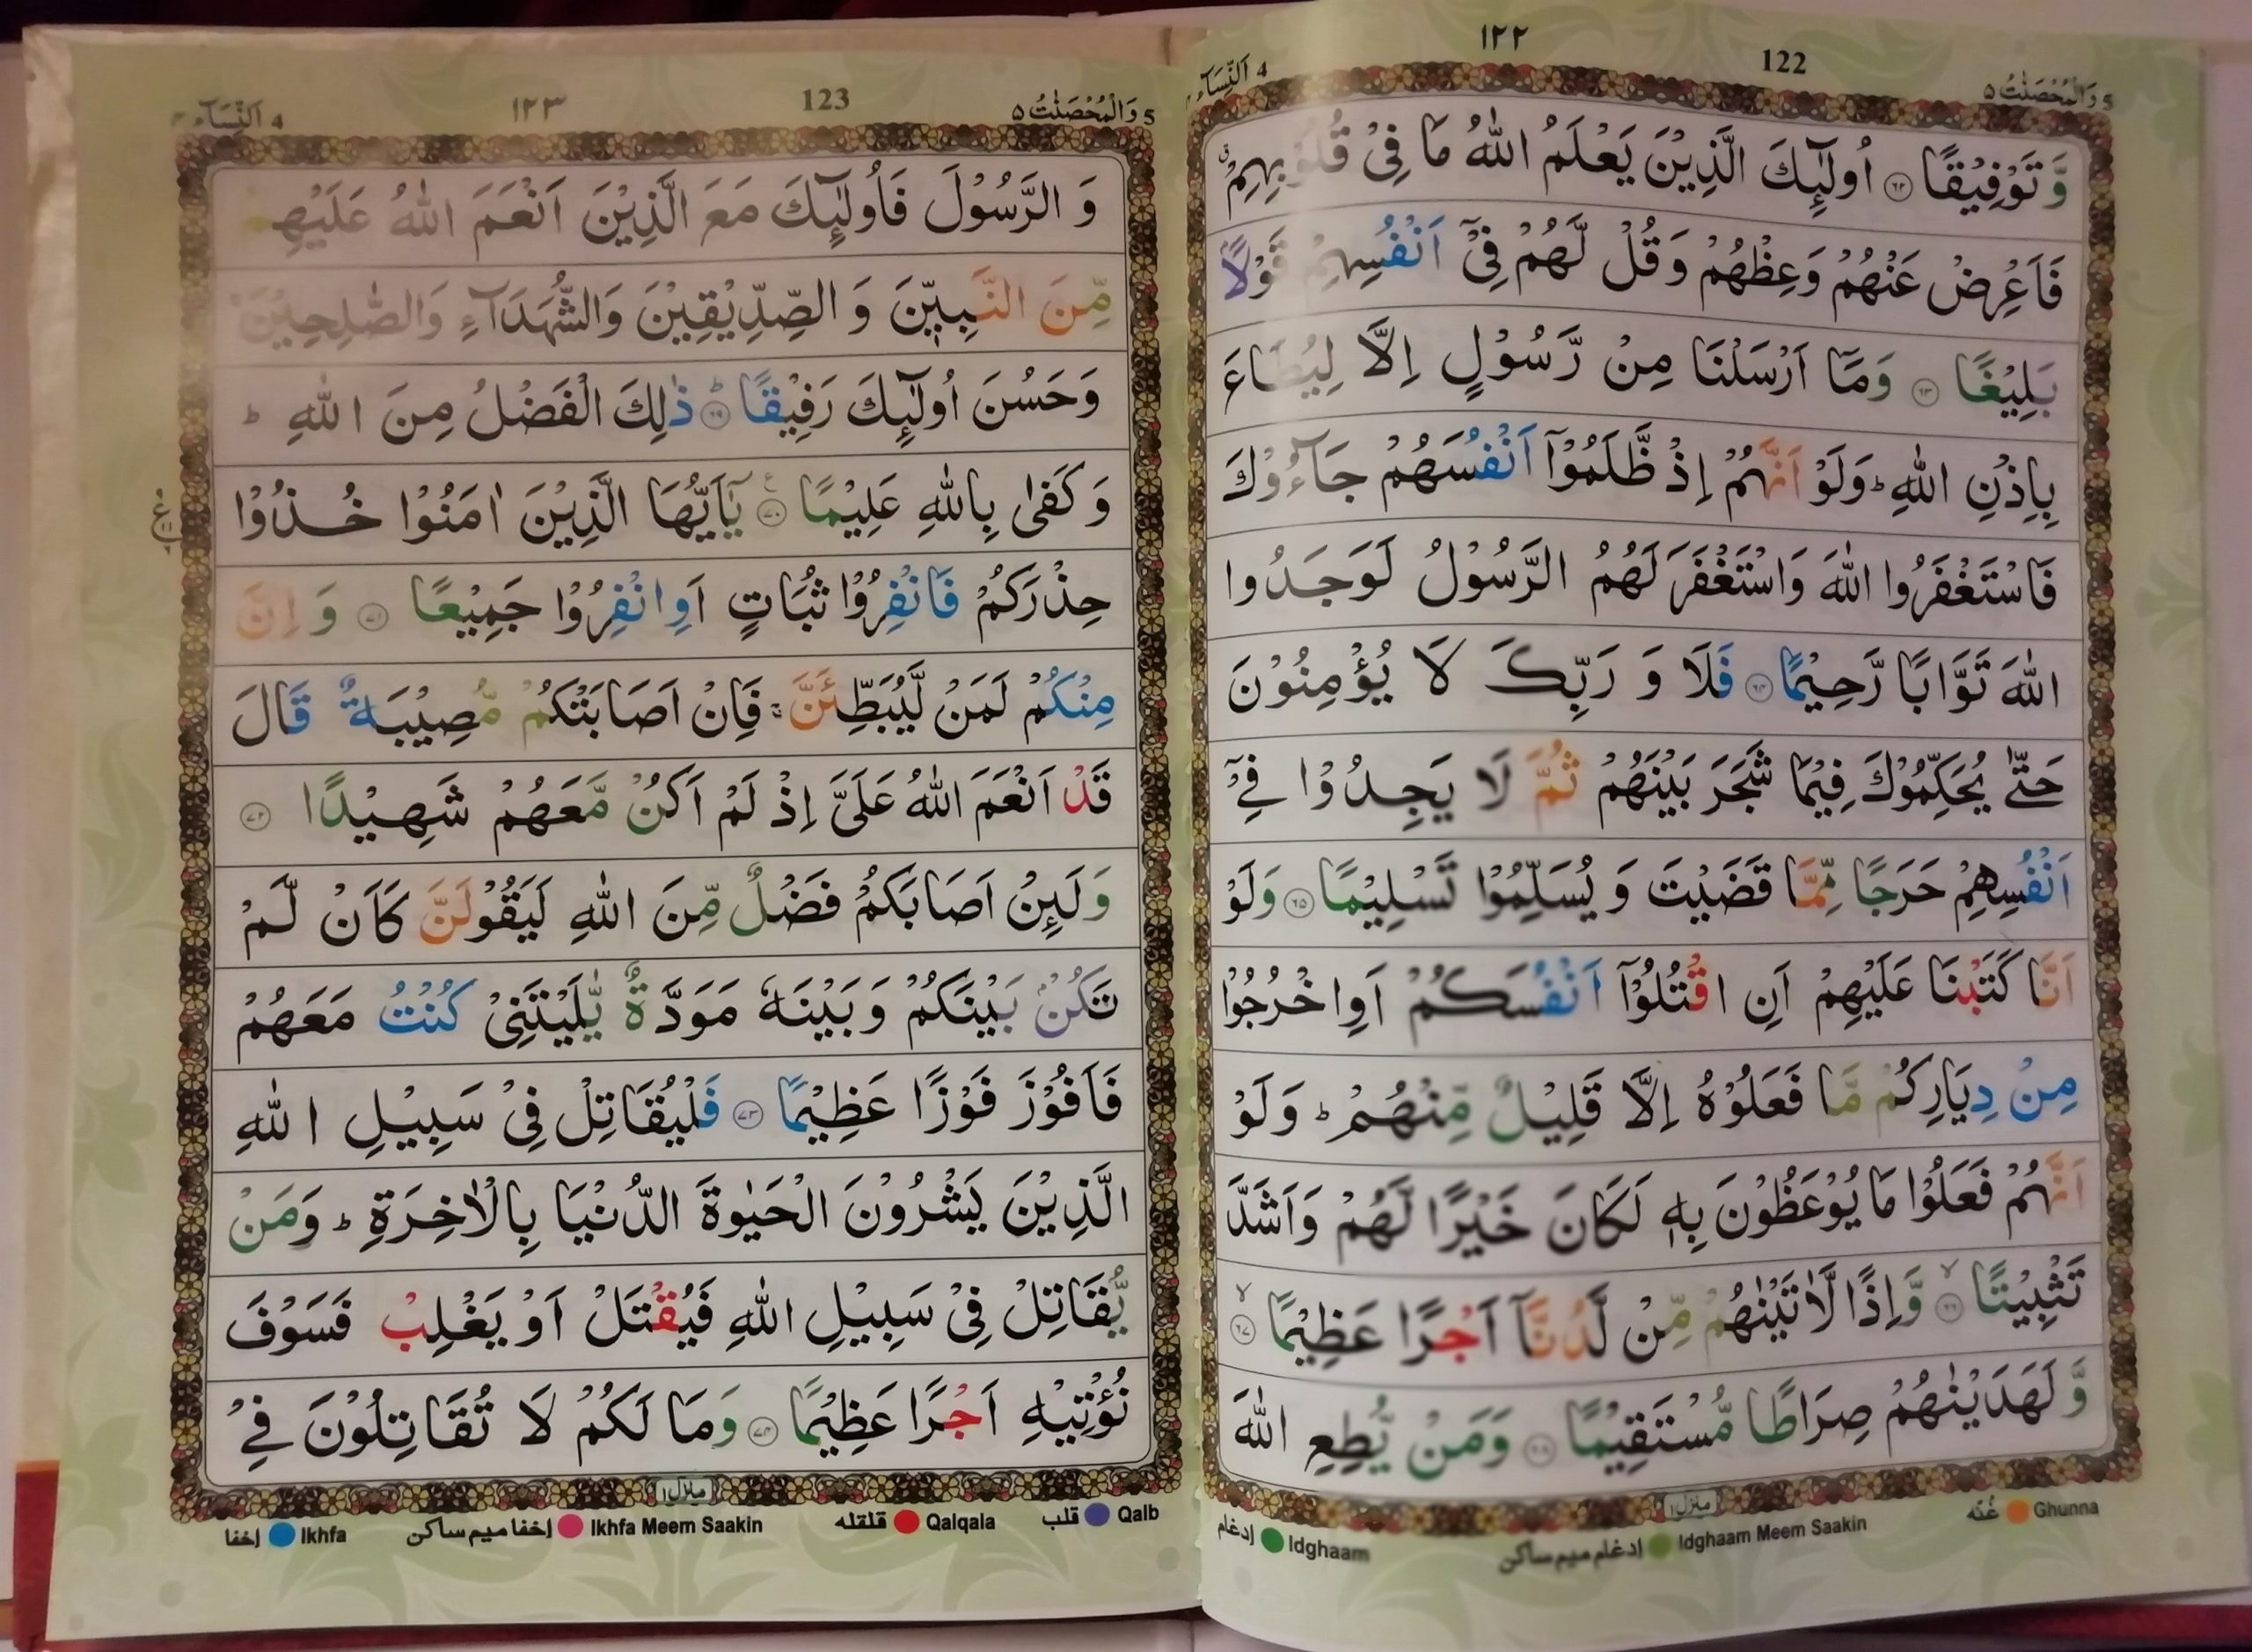 ١٢٢
5 وَالْمُحْصَنٰتُ ٥ 122 اَلنِّسَآء 4
وَّ تَوْفِيْقًا ۝٦٢ اُولٰٓئِكَ الَّذِيْنَ يَعْلَمُ اللّٰهُ مَا فِىْ قُلُوْبِهِمْ ق
فَاَعْرِضْ عَنْهُمْ وَعِظْهُمْ وَقُلْ لَّهُمْ فِىْۤ اَنْفُسِهِمْ قَوْلًاۢ
بَلِيْغًا ۝٦٣ وَمَاۤ اَرْسَلْنَا مِنْ رَّسُوْلٍ اِلَّا لِيُطَاعَ
بِاِذْنِ اللّٰهِ ؕ وَلَوْ اَنَّهُمْ اِذْ ظَّلَمُوْۤا اَنْفُسَهُمْ جَآءُوْكَ
فَاسْتَغْفَرُوا اللّٰهَ وَاسْتَغْفَرَ لَهُمُ الرَّسُوْلُ لَوَجَدُوا
اللّٰهَ تَوَّابًا رَّحِيْمًا ۝٦٤ فَلَا وَ رَبِّكَ لَا يُؤْمِنُوْنَ
حَتّٰى يُحَكِّمُوْكَ فِيْمَا شَجَرَ بَيْنَهُمْ ثُمَّ لَا يَجِدُوْا فِىْۤ
اَنْفُسِهِمْ حَرَجًا مِّمَّا قَضَيْتَ وَ يُسَلِّمُوْا تَسْلِيْمًا ۝٦٥ وَلَوْ
اَنَّا كَتَبْنَا عَلَيْهِمْ اَنِ اقْتُلُوْۤا اَنْفُسَكُمْ اَوِ اخْرُجُوْا
مِنْ دِيَارِكُمْ مَّا فَعَلُوْهُ اِلَّا قَلِيْلٌ مِّنْهُمْ ؕ وَلَوْ
اَنَّهُمْ فَعَلُوْا مَا يُوْعَظُوْنَ بِهٖ لَكَانَ خَيْرًا لَّهُمْ وَاَشَدَّ
تَثْبِيْتًا ۙ۝٦٦ وَّاِذًا لَّاٰتَيْنٰهُمْ مِّنْ لَّدُنَّاۤ اَجْرًا عَظِيْمًا ۙ۝٦٧
وَّ لَهَدَيْنٰهُمْ صِرَاطًا مُّسْتَقِيْمًا ۝٦٨ وَمَنْ يُّطِعِ اللّٰهَ
منزل ١
Ghunna غُنّه Idghaam Meem Saakin إدغام ميم ساكن Idghaam إدغام
5 وَالْمُحْصَنٰتُ ٥ 123 ١٢٣ اَلنِّسَآء 4
وَ الرَّسُوْلَ فَاُولٰٓئِكَ مَعَ الَّذِيْنَ اَنْعَمَ اللّٰهُ عَلَيْهِمْ
مِّنَ النَّبِيّٖنَ وَ الصِّدِّيْقِيْنَ وَالشُّهَدَآءِ وَالصّٰلِحِيْنَ ۚ
وَحَسُنَ اُولٰٓئِكَ رَفِيْقًا ؕ۝٦٩ ذٰلِكَ الْفَضْلُ مِنَ اللّٰهِ ؕ
وَ كَفٰى بِاللّٰهِ عَلِيْمًا ۝٧٠ يٰۤاَيُّهَا الَّذِيْنَ اٰمَنُوْا خُذُوْا
حِذْرَكُمْ فَانْفِرُوْا ثُبَاتٍ اَوِ انْفِرُوْا جَمِيْعًا ۝٧١ وَ اِنَّ
مِنْكُمْ لَمَنْ لَّيُبَطِّئَنَّ ۚ فَاِنْ اَصَابَتْكُمْ مُّصِيْبَةٌ قَالَ
قَدْ اَنْعَمَ اللّٰهُ عَلَىَّ اِذْ لَمْ اَكُنْ مَّعَهُمْ شَهِيْدًا ۝٧٢
وَلَئِنْ اَصَابَكُمْ فَضْلٌ مِّنَ اللّٰهِ لَيَقُوْلَنَّ كَاَنْ لَّمْ
تَكُنْۢ بَيْنَكُمْ وَ بَيْنَهٗ مَوَدَّةٌ يّٰلَيْتَنِىْ كُنْتُ مَعَهُمْ
فَاَفُوْزَ فَوْزًا عَظِيْمًا ۝٧٣ فَلْيُقَاتِلْ فِىْ سَبِيْلِ اللّٰهِ
الَّذِيْنَ يَشْرُوْنَ الْحَيٰوةَ الدُّنْيَا بِالْاٰخِرَةِ ؕ وَمَنْ
يُّقَاتِلْ فِىْ سَبِيْلِ اللّٰهِ فَيُقْتَلْ اَوْ يَغْلِبْ فَسَوْفَ
نُؤْتِيْهِ اَجْرًا عَظِيْمًا ۝٧٤ وَمَا لَكُمْ لَا تُقَاتِلُوْنَ فِىْ
منزل ١
Qalb قلب Qalqala قلقله Ikhfa Meem Saakin إخفا ميم ساكن Ikhfa إخفا